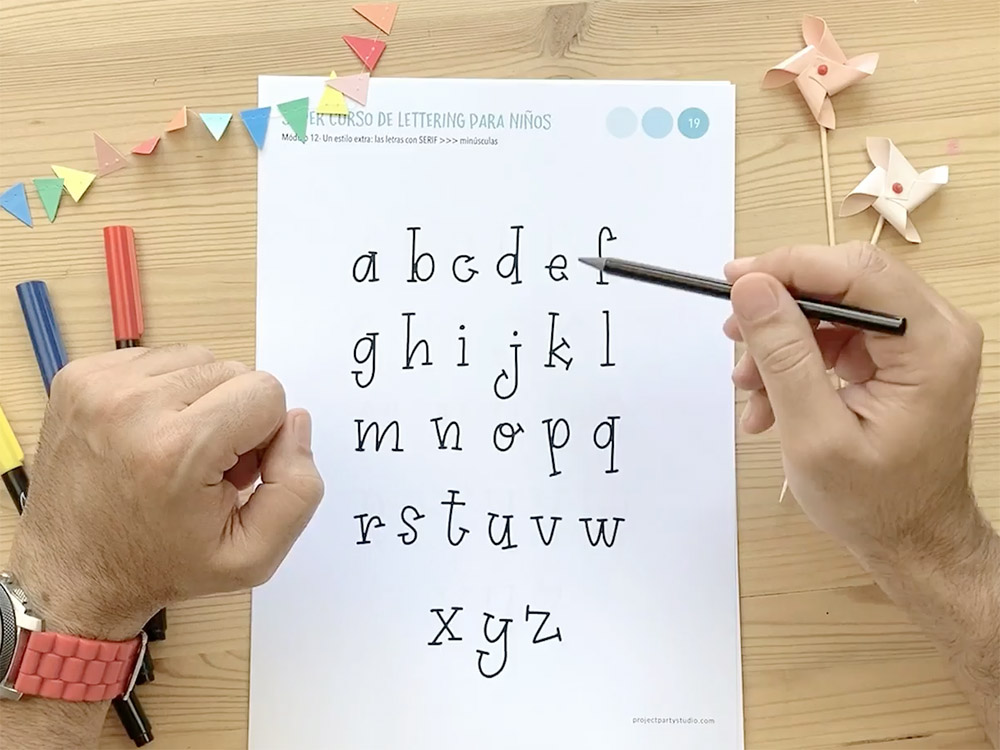 CURSO DE LETTERING PARA NIÑOS
19
12- Un estilo extra: las letras con SERIF >>> minúsculas
a b c d e f
g h i j k l
m n o p q
r s t u v w
x y z
projectpartystudio.com